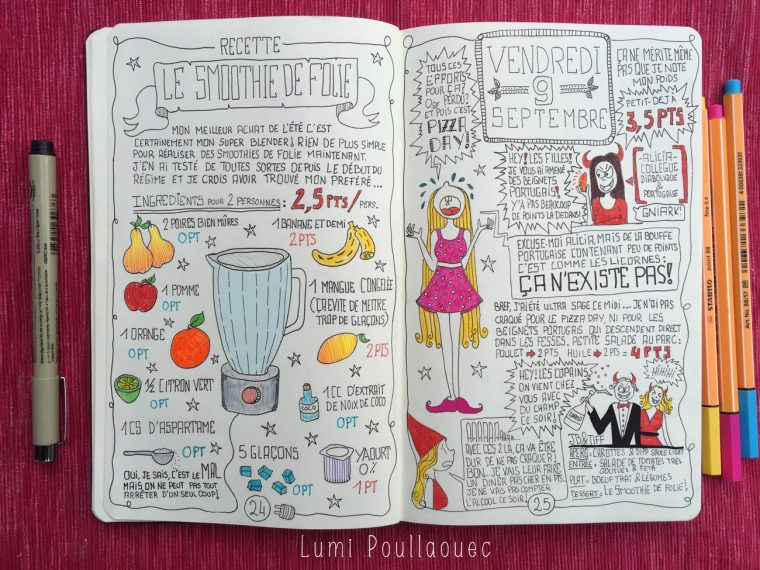 RECETTE
LE SMOOTHIE DE FOLIE
MON MEILLEUR ACHAT DE L'ÉTÉ C'EST
CERTAINEMENT MON SUPER BLENDER! RIEN DE PLUS SIMPLE
POUR RÉALISER DES SMOOTHIES DE FOLIE MAINTENANT.
J'EN AI TESTÉ DE TOUTES SORTES DEPUIS LE DÉBUT DU
RÉGIME ET JE CROIS AVOIR TROUVÉ MON PRÉFÉRÉ...
INGRÉDIENTS POUR 2 PERSONNES: 2,5 PTS/PERS.
2 POIRES BIEN MÛRES
0PT
1 BANANE ET DEMI
2 PTS
1 POMME
0PT
1 MANGUE CONGELÉE
(ÇA ÉVITE DE METTRE
TROP DE GLAÇONS)
2 PTS
1 ORANGE
0PT
½ CITRON VERT
0PT
1 CC D'EXTRAIT
DE NOIX DE COCO
0PT
COCO
1 CS D'ASPARTAME
0PT
OUI, JE SAIS, C'EST LE MAL
MAIS ON NE PEUT PAS TOUT
ARRÊTER D'UN SEUL COUP!
5 GLAÇONS
0PT
YAOURT
0%
1 PT
24
TOUS CES
EFFORTS
POUR ÇA?
PERDU?
ET PUIS C'EST
PIZZA
DAY!
VENDREDI
9
SEPTEMBRE
ÇA NE MÉRITE MÊME
PAS QUE JE NOTE
MON POIDS
PETIT-DEJ À
3,5 PTS
HEY! LES FILLES!
JE VOUS AI AMENÉ
DES BEIGNETS
PORTUGAIS!
Y'A PAS BEAUCOUP
DE POINTS LÀ DEDANS!
-ALICIA-
COLLÈGUE
DIABOLIQUE
&
PORTUGAISE
GNIARK!
EXCUSE-MOI ALICIA, MAIS DE LA BOUFFE
PORTUGAISE CONTENANT PEU DE POINTS
C'EST COMME LES LICORNES:
ÇA N'EXISTE PAS!
BREF, J'AI ÉTÉ ULTRA SAGE CE MIDI... JE N'AI PAS
CRAQUÉ POUR LE PIZZA DAY, NI POUR LES
BEIGNETS PORTUGAIS QUI DESCENDENT DIRECT
DANS LES FESSES. PETITE SALADE AU PARC:
POULET → 2 PTS HUILE → 2 PTS = 4 PTS
HEY! LES COPAINS
ON VIENT CHEZ
VOUS AVEC
DU CHAMP
CE SOIR!
HIHIHI
JD & TIFF
AVEC CES 2 LÀ ÇA VA ÊTRE
DUR DE NE PAS CRAQUER!
BON. JE VAIS LEUR FAIRE
UN DINER PAS CHER EN PTS.
JE NE VAIS PAS COMPTER
L'ALCOOL CE SOIR!
APÉRO - CAROTTES & DIPP SAUCE LIGHT
ENTRÉE - SALADE DE TOMATES TRÈS
& FETA
PLAT - BOEUF THAI & LÉGUMES
DESSERT - LE SMOOTHIE DE FOLIE!
25
STABILO
point 88
fine 0.4
Lumi Poullaouec